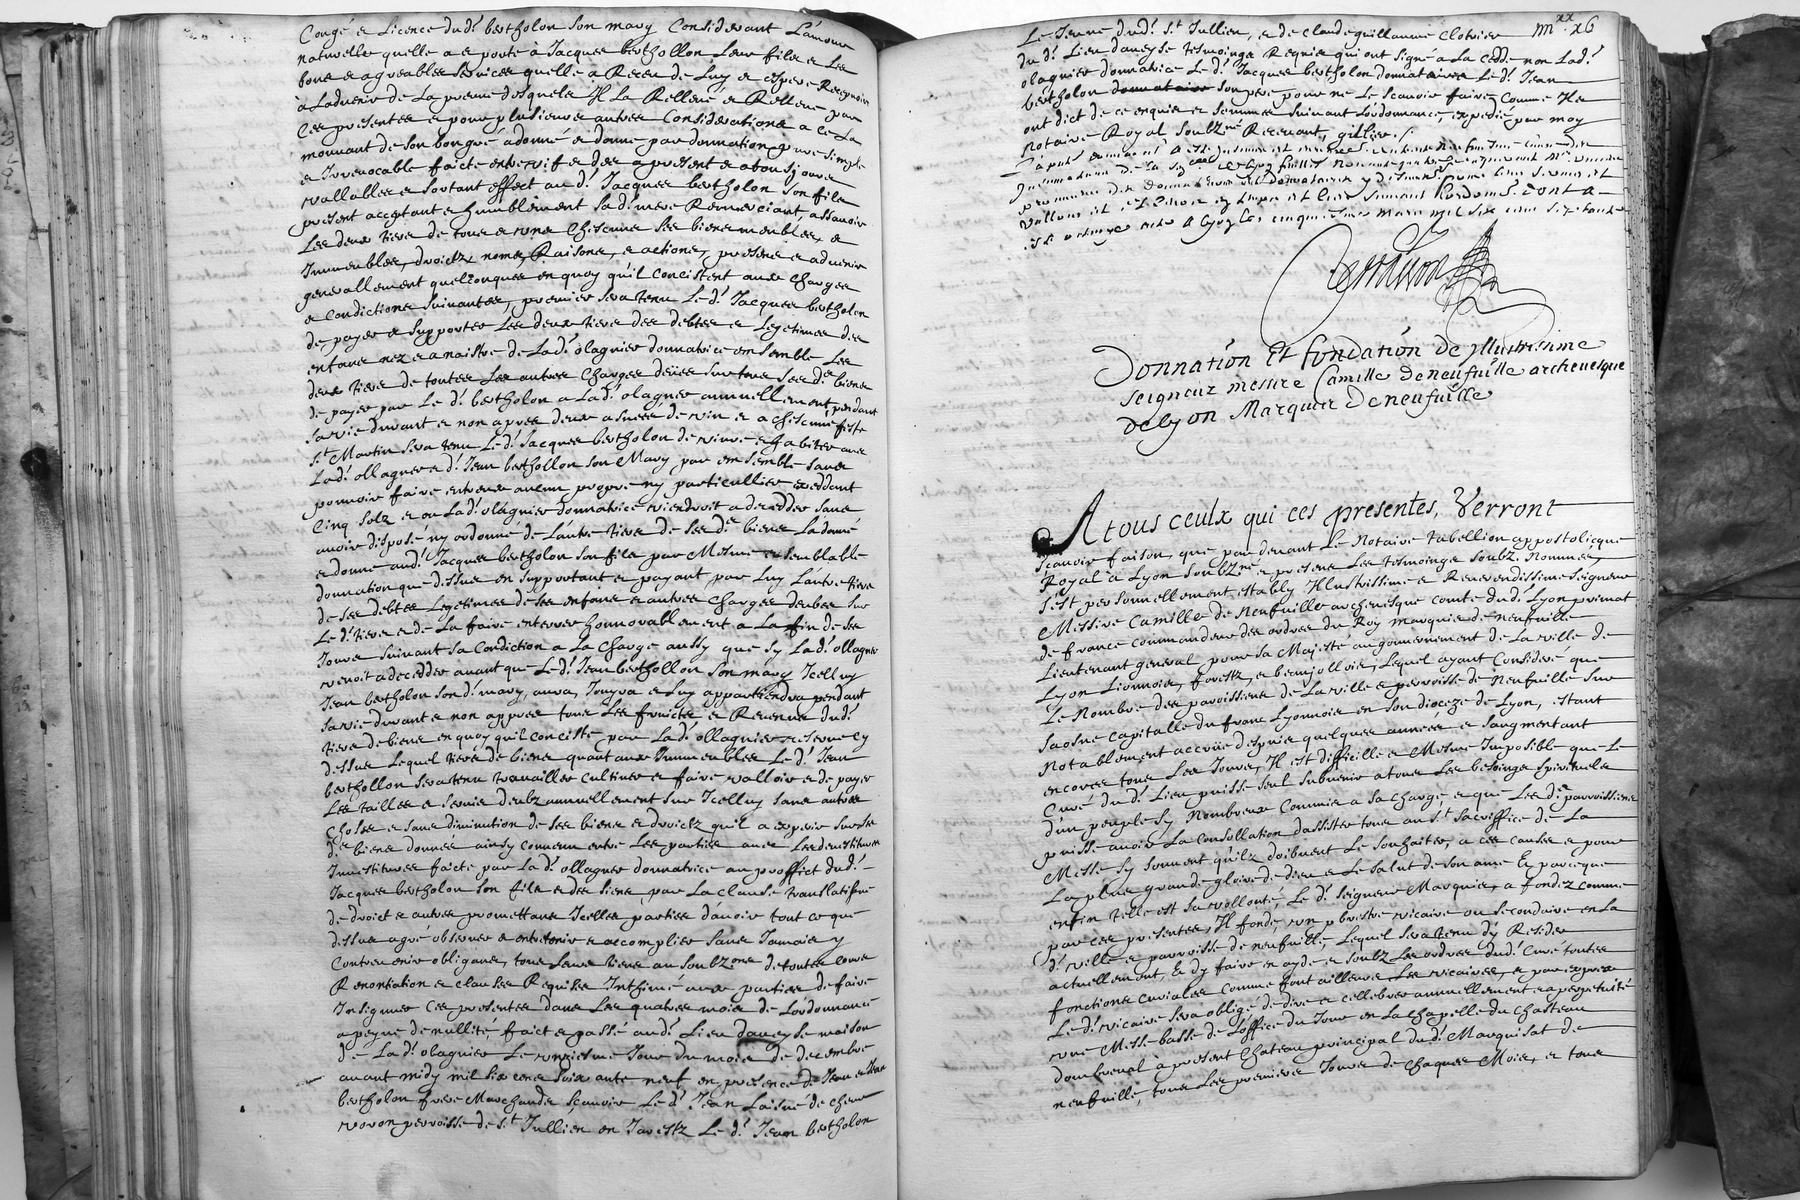 Congé & Licence dud.t bertholon son mary Considerant L'amour
naturelle quelle a & porte à Jacques berthollon Leur filz & Les
bons & agreables services quelle a Receu de Luy & espere Recepvoir
à Ladvenir de La preuve desquels Il La Relleue & Relleue par
Ces presentes & pour plusieurs autres Considerations a ce La
mouuant de son bon gré à donné & donne par donnation pure simple
& Irreuocable faicte entre vifz & des a present & a tousjours
vallables & sortant effect aud.t Jacques bertholon son filz
present acceptant & humblement sad.t mere Remerciant, assauoir
Les deux tiers de tous & vns Chescuns ses biens meubles, &
Immeubles, droictz, noms, Raisons, & actions, presens & aduenir
generallement quelconques en quoy qu'il concistent aux charges
& condictions suiuantes, premier sera tenu Led.t Jacques bertholon
de payer & supporter Les deux tiers des debtes & Legetimes des
enfans nez & a naistre de Lad.t olagnier donnatrice ensemble Les
deux tiers de toutes Les autres Charges deües sur tous ses d.s biens
de payer par Le d.t bertholon a Lad.t olagnier annuellement pendant
sa vie durant & non apres deux asnees de vin & a chescune feste
s.t Martin sera tenu Led.t Jacques bertholon de viure & habiter auec
Lad.t ollagnier & d.t Jean berthollon son Mary par ensemble sans
pouuoir faire entreux aucun propre ny particullier exceddant
Cinq solz & ou Lad.t olagnier donnatrice viendroit a decedder sans
auoir disposé ny ordonné de Lautre tiers de ses d.s biens La donné
& donne aud.t Jacques bertholon son filz par Mesme & semblable
donnation que dessus en supportant & payant par Luy Lautre tiers
de ses debtes Legetimes de ses enfans & autres Charges deubes sur
Led.t tiers & de La faire enterrer honnorablement a La fin de ses
Jours suiuant sa Condiction a La Charge aussy que sy Lad.t ollagnier
venoit a decedder auant que Led.t Jean berthollon son mary Icelluy
Jean bertholon sond.t mary, aura, Jouyra & Luy appartiendra pendant
sa vie durant & non apres tous Les fruictz & Reuenus dud.t
tiers de biens en quoy qu'il conciste par Lad.t ollagnier reserue cy
dessus Lequel tiers de biens quant aux Immeubles Led.t Jean
berthollon sera tenu trauailler cultiuer & faire valloir & de payer
Les tailles & seruis deubz annuellement sur Icelluy sans autres
Choses & sans diminution de ses biens & droictz qu'il a & espere sur ses
d.s biens donnés ainsy conuenu entre Les parties auec Les deuestitures
Inuestitures faicte par Lad.t ollagnier donnatrice au proffict dud.t
Jacques bertholon son filz & des siens, par La clause translatifue
de droict & autres promettans Icelles parties d'auoir tout ce que
dessus agré obseruer & entretenir & accomplier sans Jamais y
Contreuenir obligeans, tous Leurs biens au soubz.nes de toutes cours
Renontiation & clauses Requises Inthimé aux parties de faire
Insignuer Ces presentes dans Les quatres mois de Lordonnance
a peyne de nullité, faict & passé aud.t Lieu daueyse maison
de Lad.t olagnier Le vnziesme Jour du mois de decembre
auant midy mil six cens soixante neuf en presence de Jean & Jean
bertholon frere Marchandz sçauoir Led.t Jean Laisné de cheuz
voron perroisse de s.t Jullien en Jarestz Le d.t Jean bertholon
m xx x6
Le Jeune dud.t s.t Jullien, & de Claude guillaume Clotrier
du d.t Lieu daueyse tesmoings Requis qui ont signé a La cedd. non Lad.t
olagnier donnatrice Le d.t Jacques bertholon donnataires Led.t Jean
bertholon donnataire son pere pour ne Le scauoir faire, Comme Ilz
ont dict de ce enquis & sommes suiuant Lordonnance, expedié par moy
Notaire Royal soubz.né Receuant, gillier./
Donnation Et fondation de Illustrissime
seigneur messire Camille de neufuille archeuesque
de lyon Marquis de neufuille
A tous ceulx qui ces presentes, Verront
sçauoir faison, que par deuant Le Notaire tabellion appostolicque
Royal à Lyon soubz.né & presens Les tesmoings soubz. Nommés,
s'est personnellement estably Illustrissime & Reuerendissime seigneur
Messire Camille de Neufuille archeuesque comte dud.t Lyon primat
de france commandeur des ordres du Roy marquis de neufuille
Lieutenant general pour sa Majesté au gouuernement de La ville de
Lyon Lionnois, forestz, & beaujollois, Lequel ayant Consideré que
Le Nombre des paroissiens de La ville & perroisse de Neufuille sur
saosne capitalle du franc Lyonnois en son dioceze de Lyon, estant
Notablement accrüe despuis quelques années & saugmentant
encores tous Les Jours, Il est difficille & Mesme Imposible que Le
Curé du d.t Lieu puisse seul subuenir a tous Les besoings spirituels
d'un peuple sy Nombreux Commis a sa charge & que Les d.s parroissiens
puisse auoir La consollation dassister tous au s.t sacriffice de La
Messe sy souuent qu'ilz doibuent Le souhaiter, a ces causes & pour
La plus grande gloire de dieu & Le salut de son ame Et parceque
enfin telle est sa vollonté, Le d.t seigneur Marquis, a fondez comme
par ces presentes, Il fonde, vn pbrestre vicaire ou secondaire en La
d.t ville & parroisse de neufuille, Lequel sera tenu d'y Resider
actuellement, & d'y faire en ayde & soubz Les ordres dud.t Curé toutes
fonctions curiales comme font ailleurs Les vicaires, & par expres
Le d.t vicaire sera obligé de dire & cellebrer annuellement & a perpetuité
vne Messe basse de L'office du Jour en La chapelle du chasteau
dombreual à present Chateau principal dud.t Marquisat de
neufuille, tous Les premiers Jours de Chaques Mois, & tous